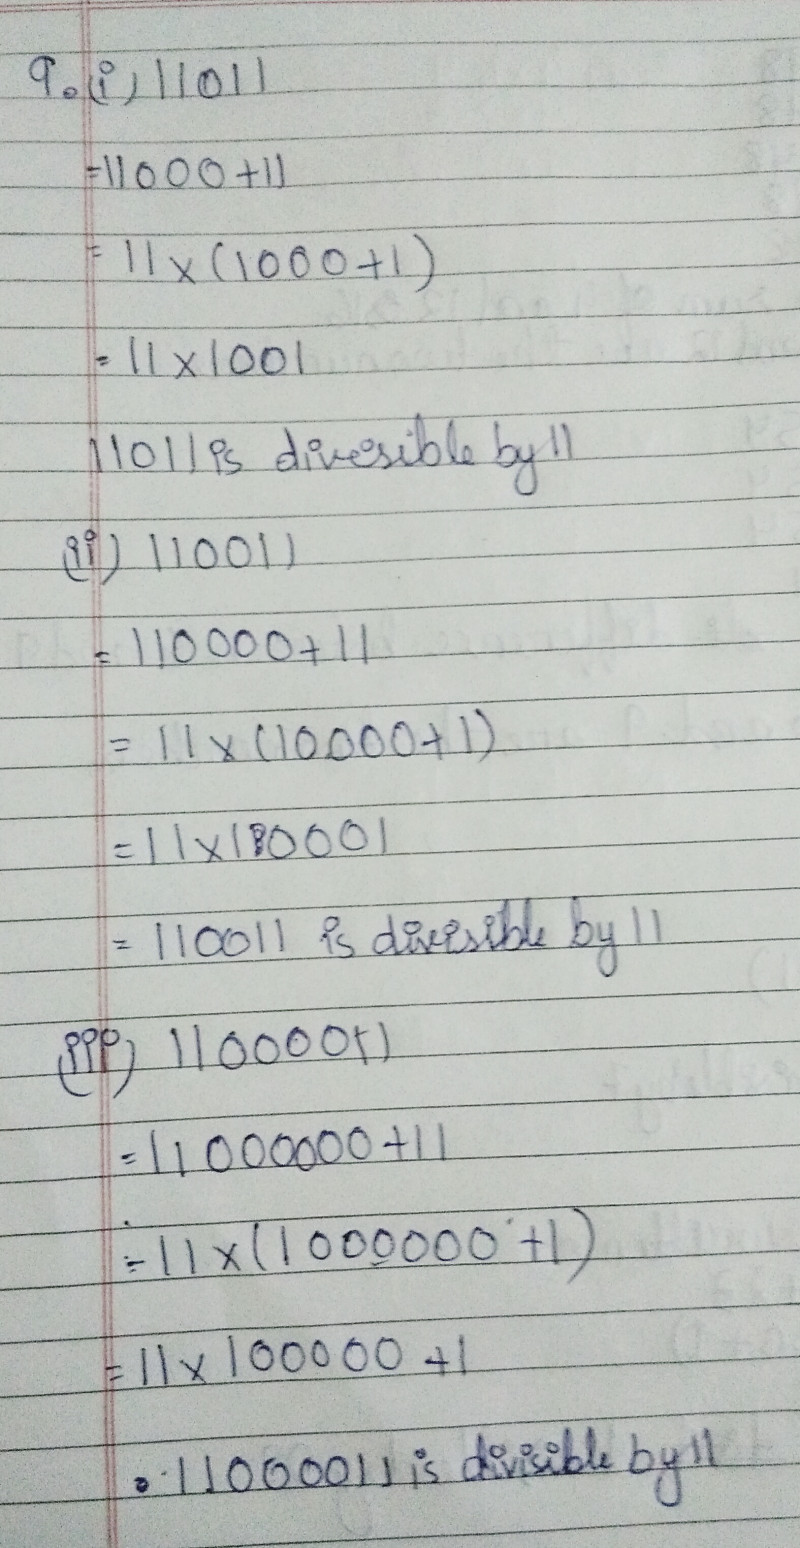 9. (i) 11011
=11000+11
= 11×(1000+1)
= 11×1001
11011 is divesible by 11
(ii) 110011
= 110000+11
= 11×(10000+1)
= 11×10001
= 110011 is divesible by 11
(iii) 11000011
= 11000000+11
= 11×(1000000+1)
= 11×100000+1
. 11000011 is divisible by 11